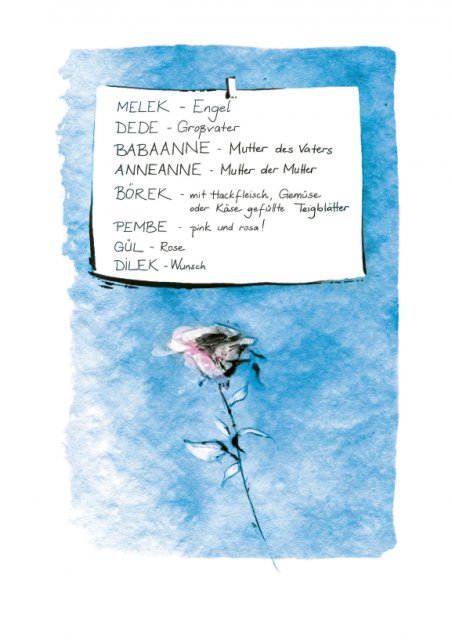 MELEK - Engel
DEDE - Großvater
BABAANNE - Mutter des Vaters
ANNEANNE - Mutter der Mutter
BÖREK - mit Hackfleisch, Gemüse
oder Käse gefüllte Teigblätter
PEMBE - pink und rosa!
GÜL - Rose
DİLEK - Wunsch